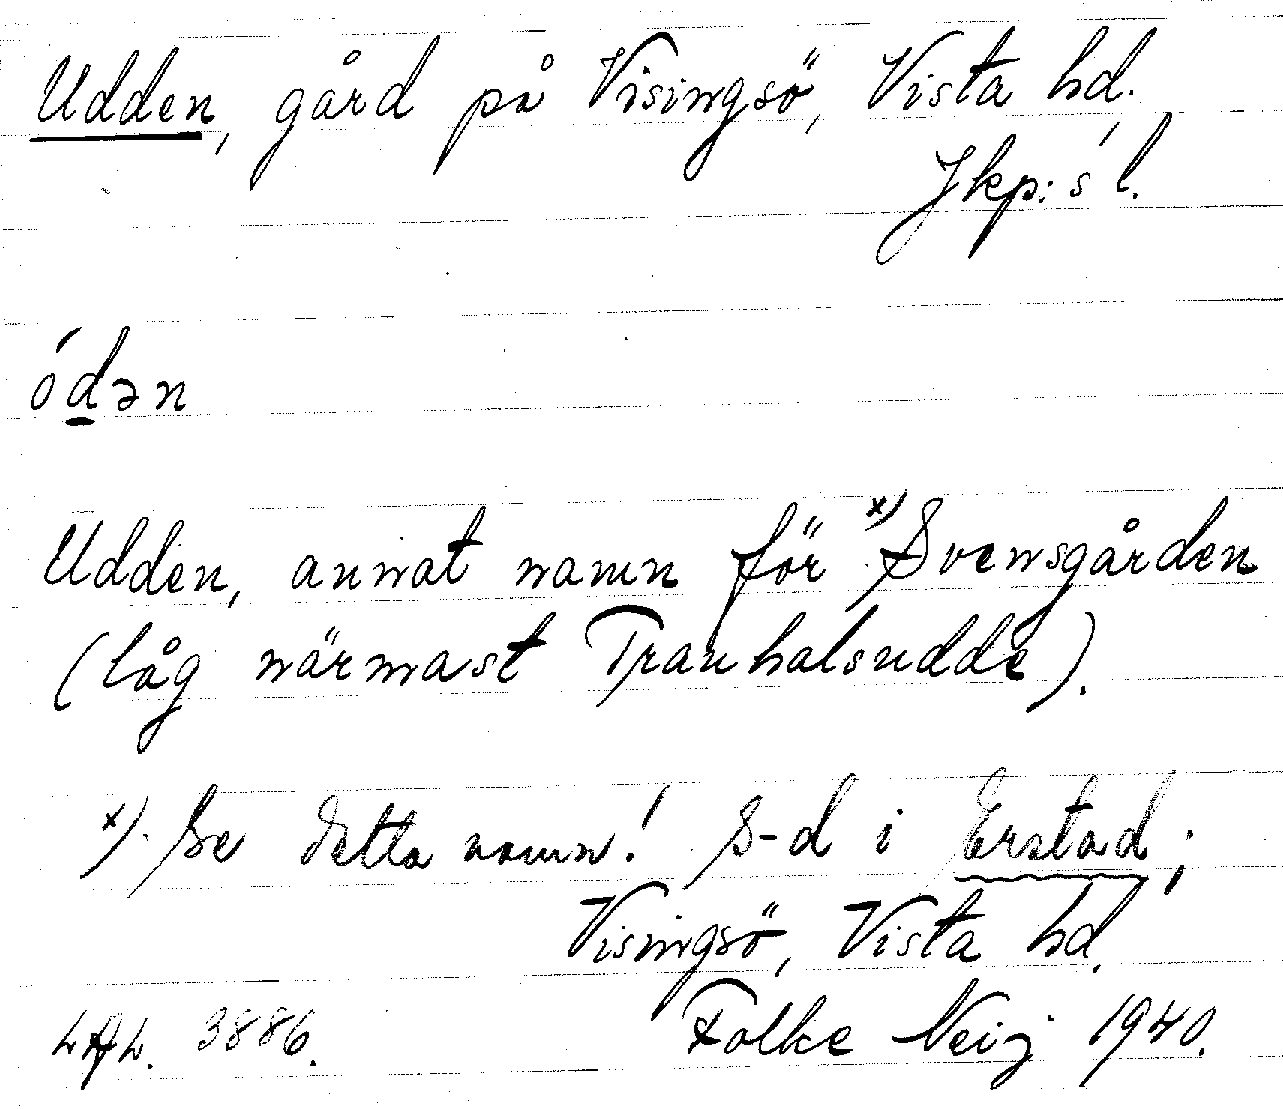 Udden, gård på Visingsö, Vista hd.
Jkp:s l.
ódən
Udden, annat namn för x) Svensgården
(låg närmast Tranhalsudde).
x). Se detta namn! S-d i Erstad;
Visingsö, Vista hd.
LAL. 3886. Folke Neij 1940.